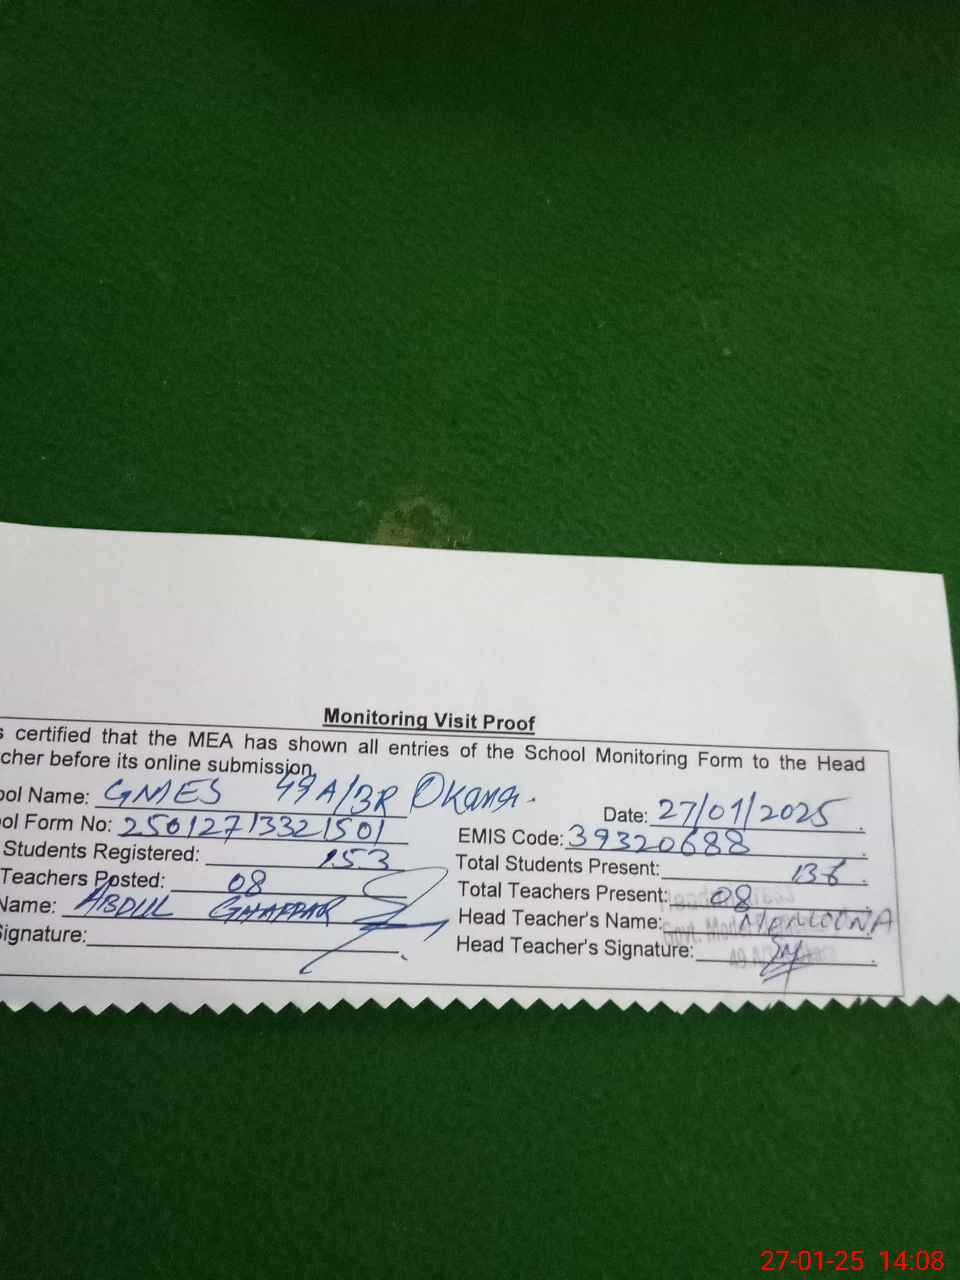 Monitoring Visit Proof
s certified that the MEA has shown all entries of the School Monitoring Form to the Head
cher before its online submission
ool Name: GMES 49A/3R Okana. Date: 27/01/2025
ol Form No: 25012713321501 EMIS Code: 39320688
Students Registered: 153 Total Students Present: 136
Teachers Posted: 08 Total Teachers Present: 08
Name: ABDUL GHAFFAR Head Teacher's Name:
ignature: Head Teacher's Signature:
27-01-25 14:08